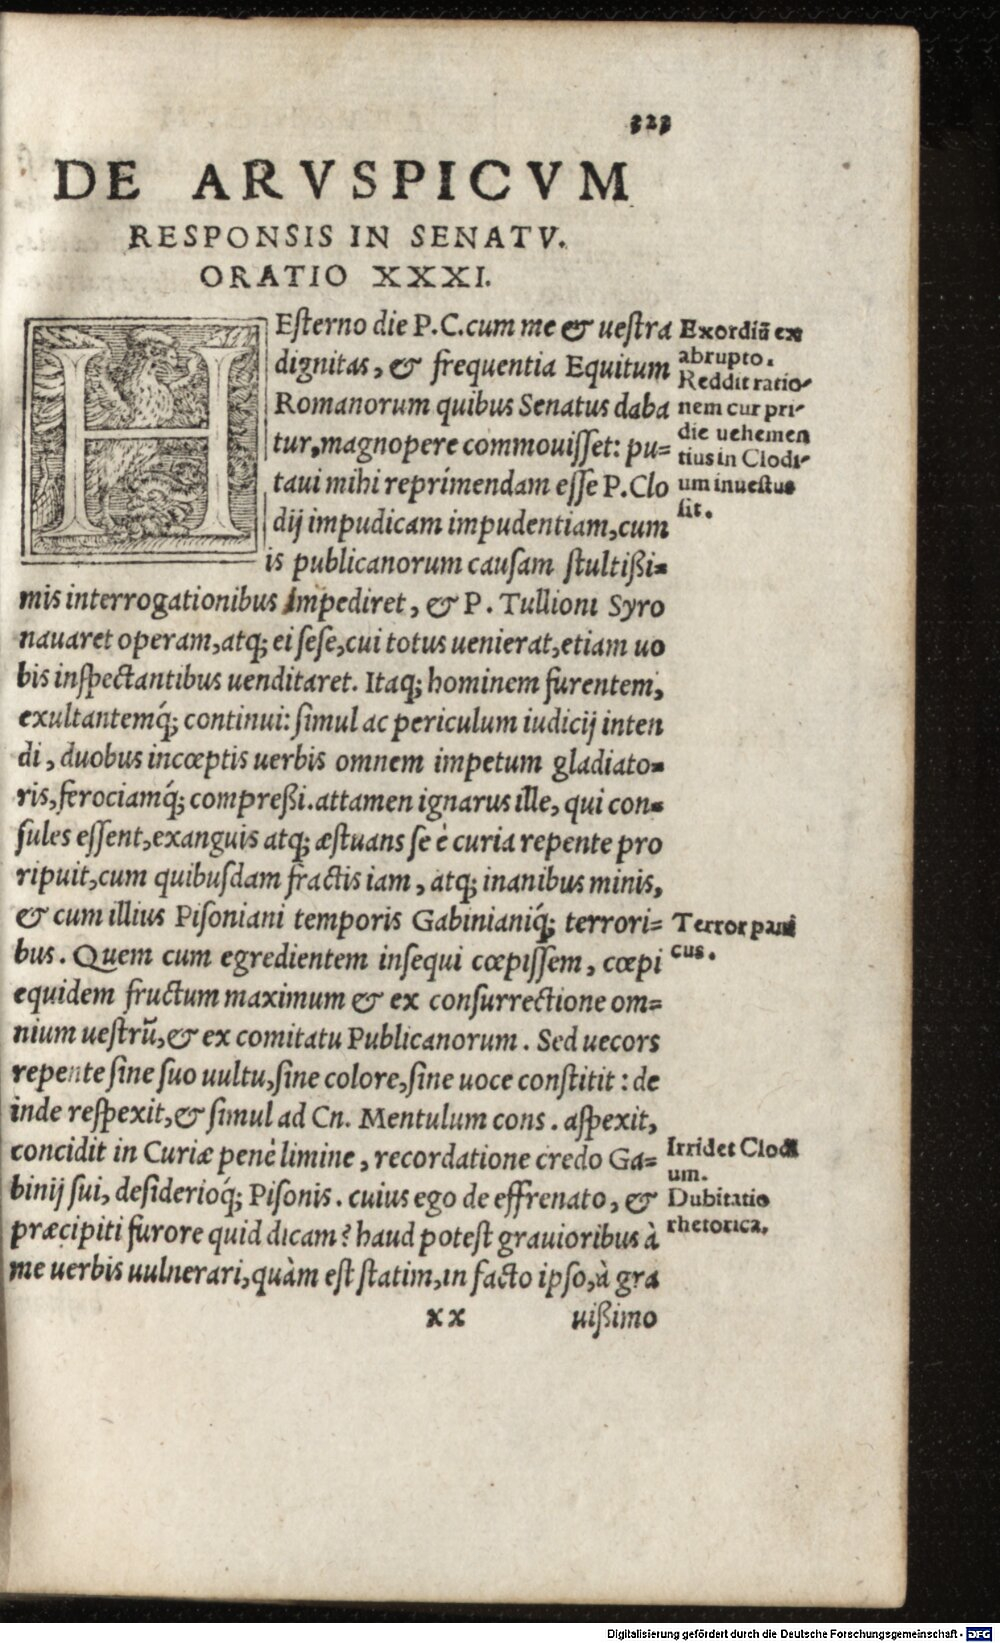 323
DE ARVSPICVM
RESPONSIS IN SENATV.
ORATIO XXXI.
HEſterno die P.C.cum me & ueſtra
dignitas, & frequentia Equitum
Romanorum quibus Senatus daba
tur,magnopere commouiſſet: pu=
taui mihi reprimendam eſſe P.Clo
dij impudicam impudentiam,cum
is publicanorum cauſam ſtultißi=
mis interrogationibus impediret, & P. Tullioni Syro
nauaret operam,atq; ei ſeſe,cui totus uenierat,etiam uo
bis inſpectantibus uenditaret. Itaq; hominem furentem,
exultantemq́; continui: ſimul ac periculum iudicij inten
di, duobus incœptis uerbis omnem impetum gladiato=
ris,ferociamq́; compreßi.attamen ignarus ille, qui con=
ſules eſſent,exanguis atq; æſtuans ſe è curia repente pro
ripuit,cum quibuſdam fractis iam, atq; inanibus minis,
& cum illius Piſoniani temporis Gabinianiq́; terrori=
bus. Quem cum egredientem inſequi cœpiſſem, cœpi
equidem fructum maximum & ex conſurrectione om=
nium ueſtrũ,& ex comitatu Publicanorum. Sed uecors
repente ſine ſuo uultu,ſine colore,ſine uoce conſtitit: de
inde reſpexit,& ſimul ad Cn. Mentulum cons. aſpexit,
concidit in Curiæ penè limine, recordatione credo Ga=
binij ſui, deſiderioq́; Piſonis. cuius ego de effrenato, &
præcipiti furore quid dicam? haud poteſt grauioribus à
me uerbis uulnerari,quàm eſt ſtatim,in facto ipſo,à gra
xx uißimo
Exordiũ ex
abrupto.
Reddit ratio-
nem cur pri-
die uehemen
tius in Clodi-
um inuectus
ſit.
Terror pani
cus.
Irridet Clodi
um.
Dubitatio
rhetorica.
Digitalisierung gefördert durch die Deutsche Forschungsgemeinschaft - DFG